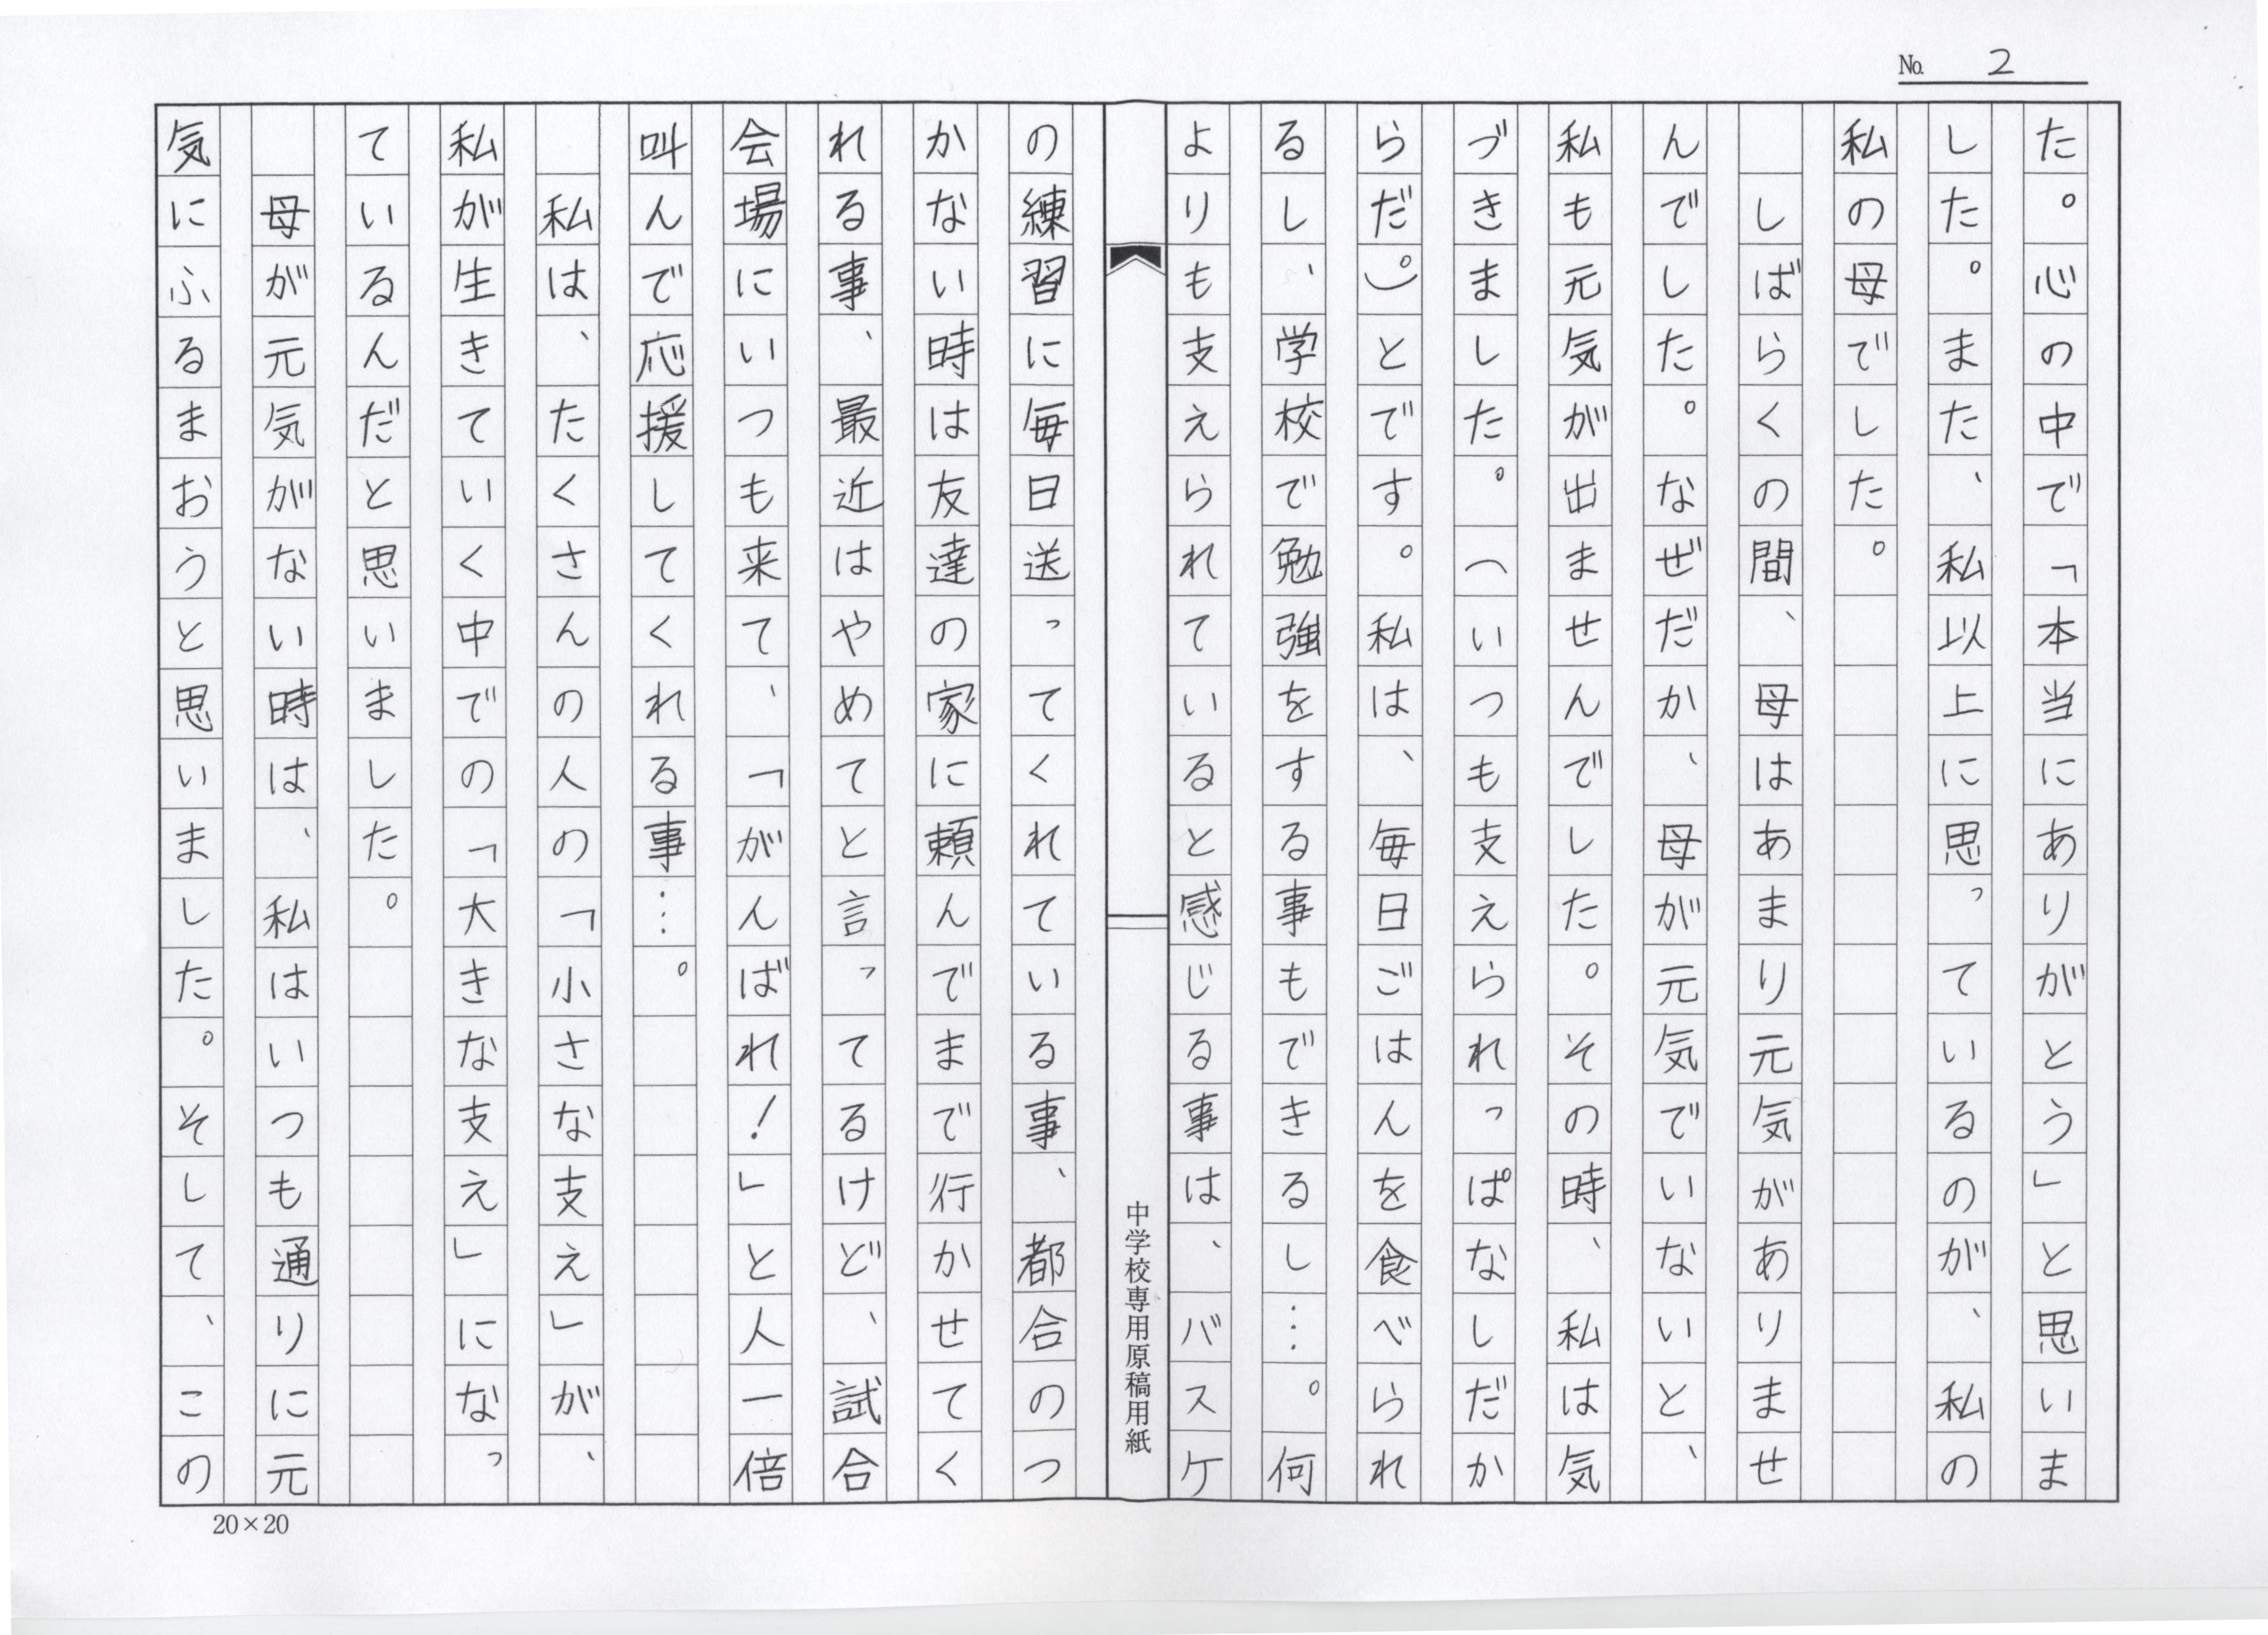 No. 2
た。心の中で「本当にありがとう」と思いま
した。また、私以上に思っているのが、私の
私の母でした。
しばらくの間、母はあまり元気がありませ
んでした。なぜだか、母が元気でいないと、
私も元気が出ませんでした。その時、私は気
づきました。（いつも支えられっぱなしだか
らだ。）とです。私は、毎日ごはんを食べられ
るし、学校で勉強をする事もできるし…。何
よりも支えられていると感じる事は、バスケ
中学校専用原稿用紙
の練習に毎日送ってくれている事、都合のつ
かない時は友達の家に頼んでまで行かせてく
れる事、最近はやめてと言ってるけど、試合
会場にいつも来て、「がんばれ！」と人一倍
叫んで応援してくれる事…。
私は、たくさんの人の「小さな支え」が、
私が生きていく中での「大きな支え」になっ
ているんだと思いました。
母が元気がない時は、私はいつも通りに元
気にふるまおうと思いました。そして、この
20×20